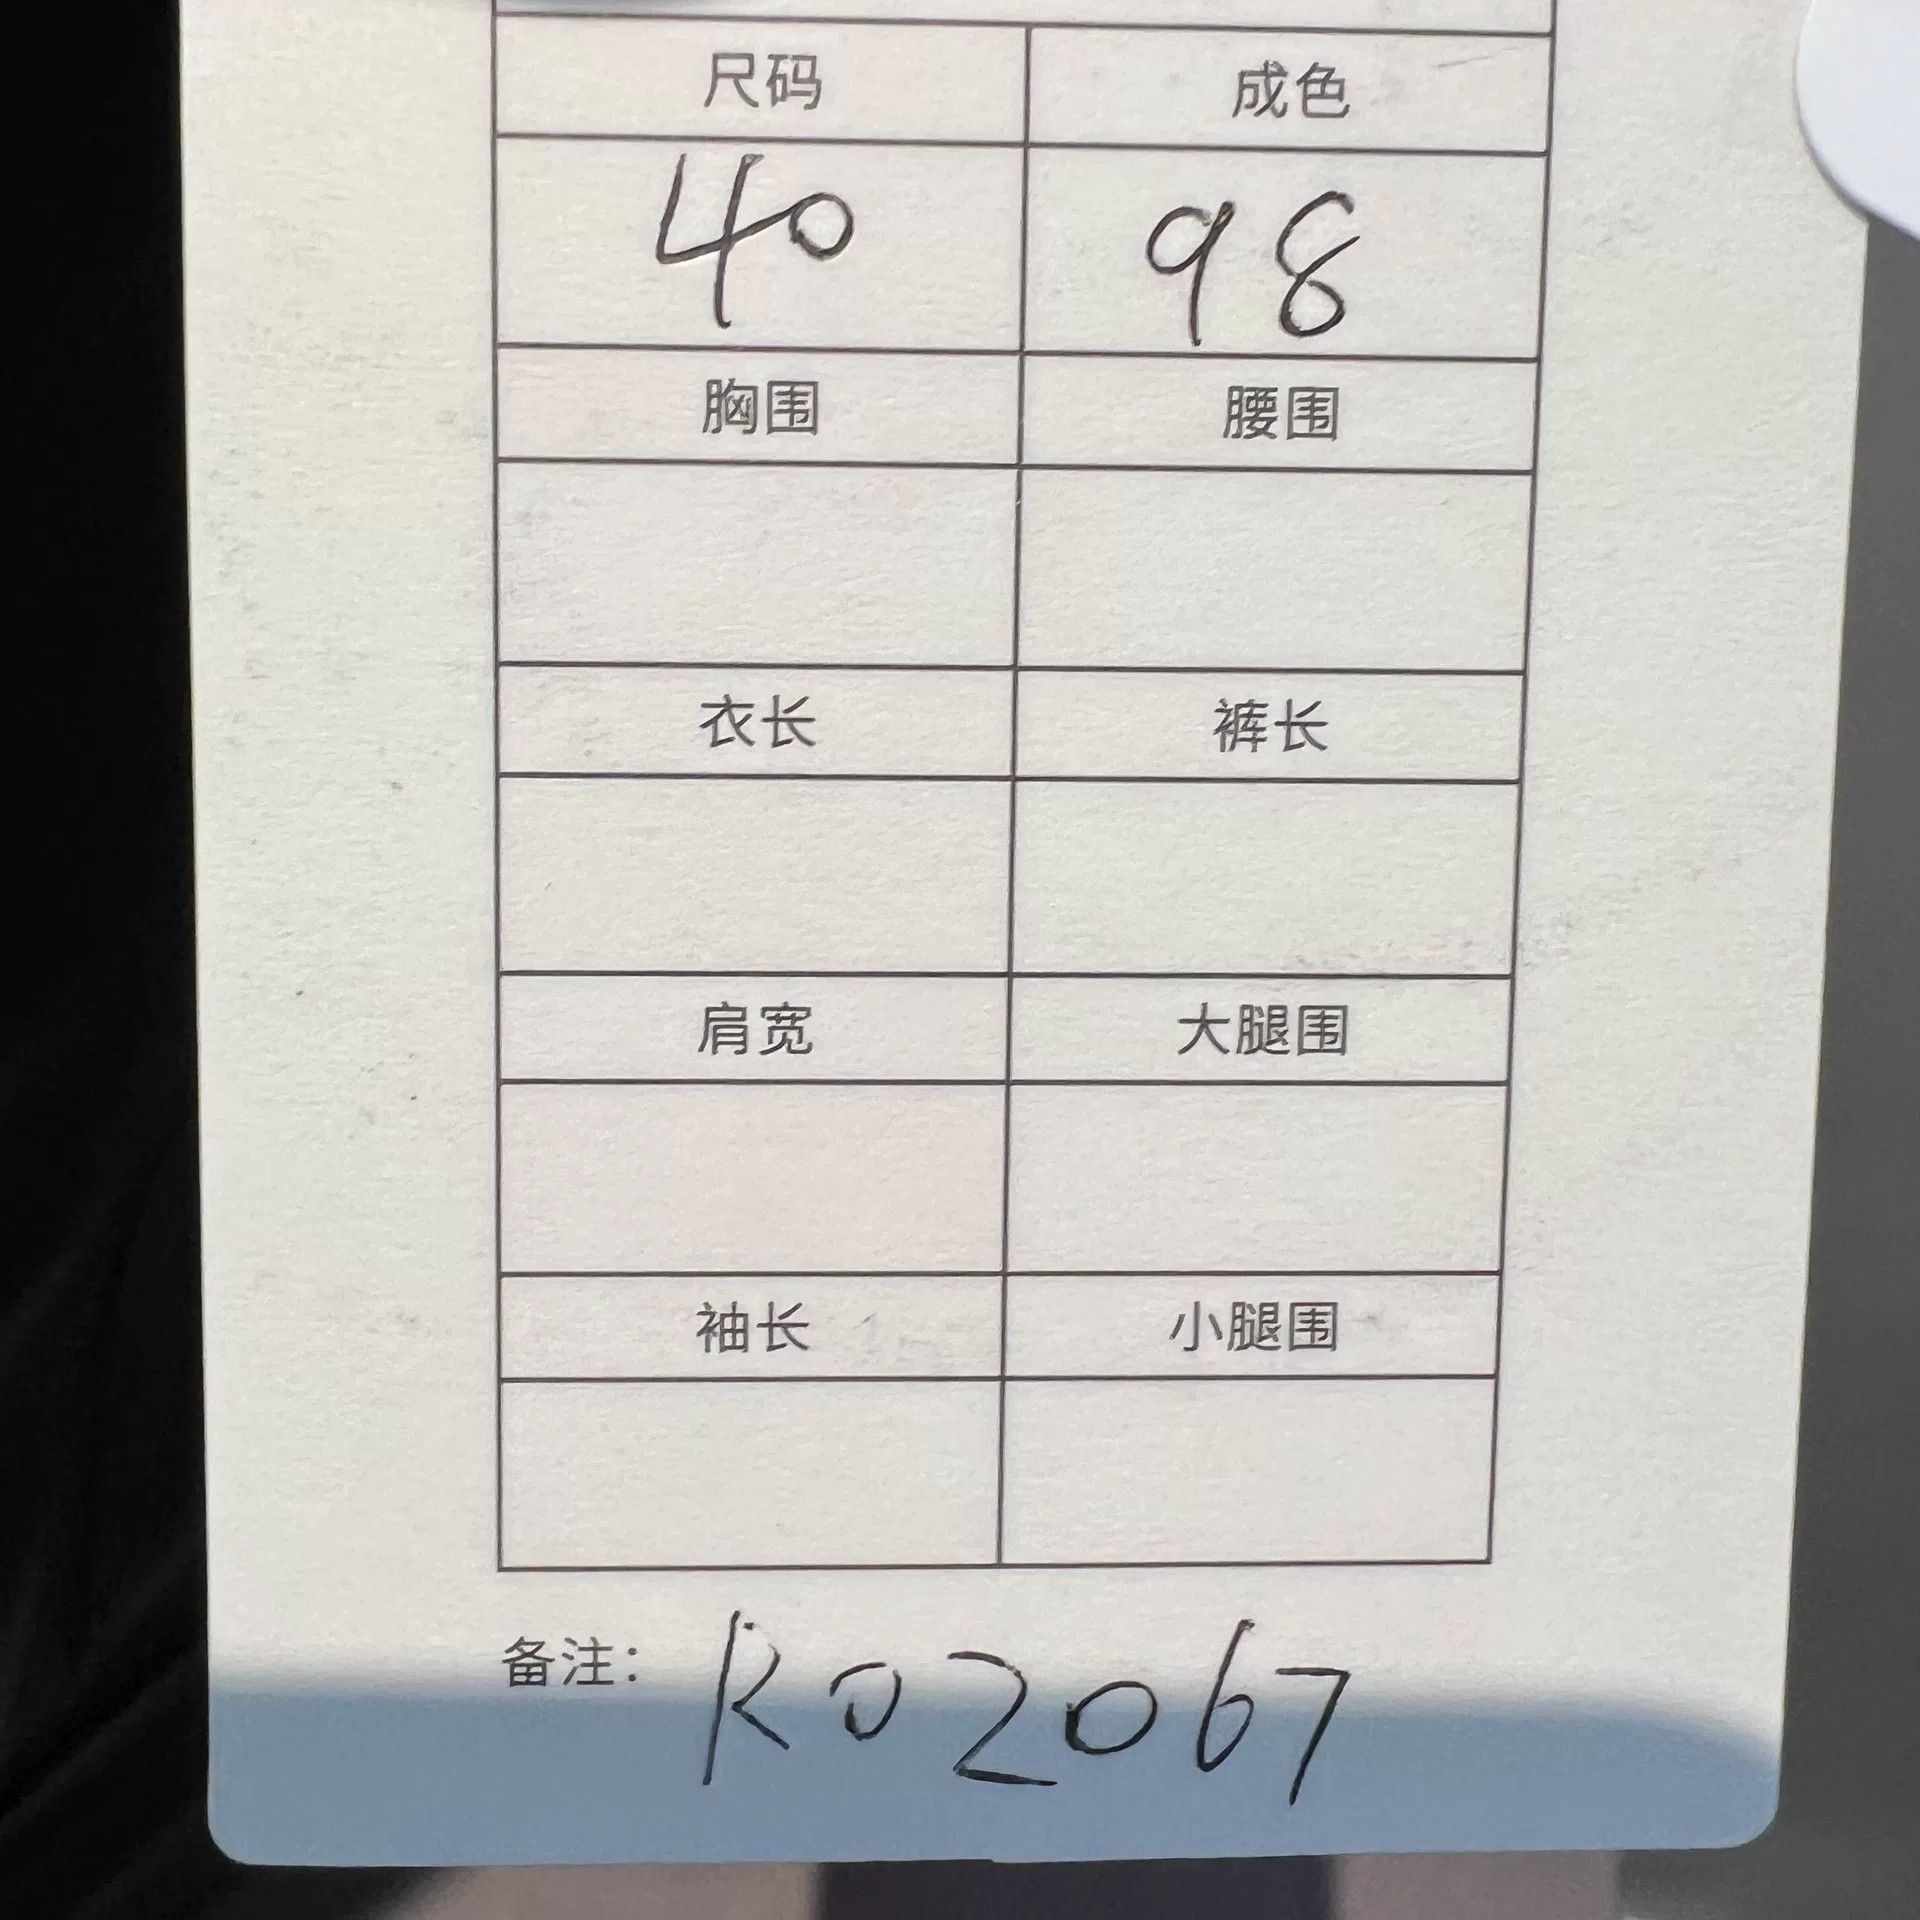 尺码 成色
40 98
胸围 腰围
衣长 裤长
肩宽 大腿围
袖长 小腿围
备注： R02067